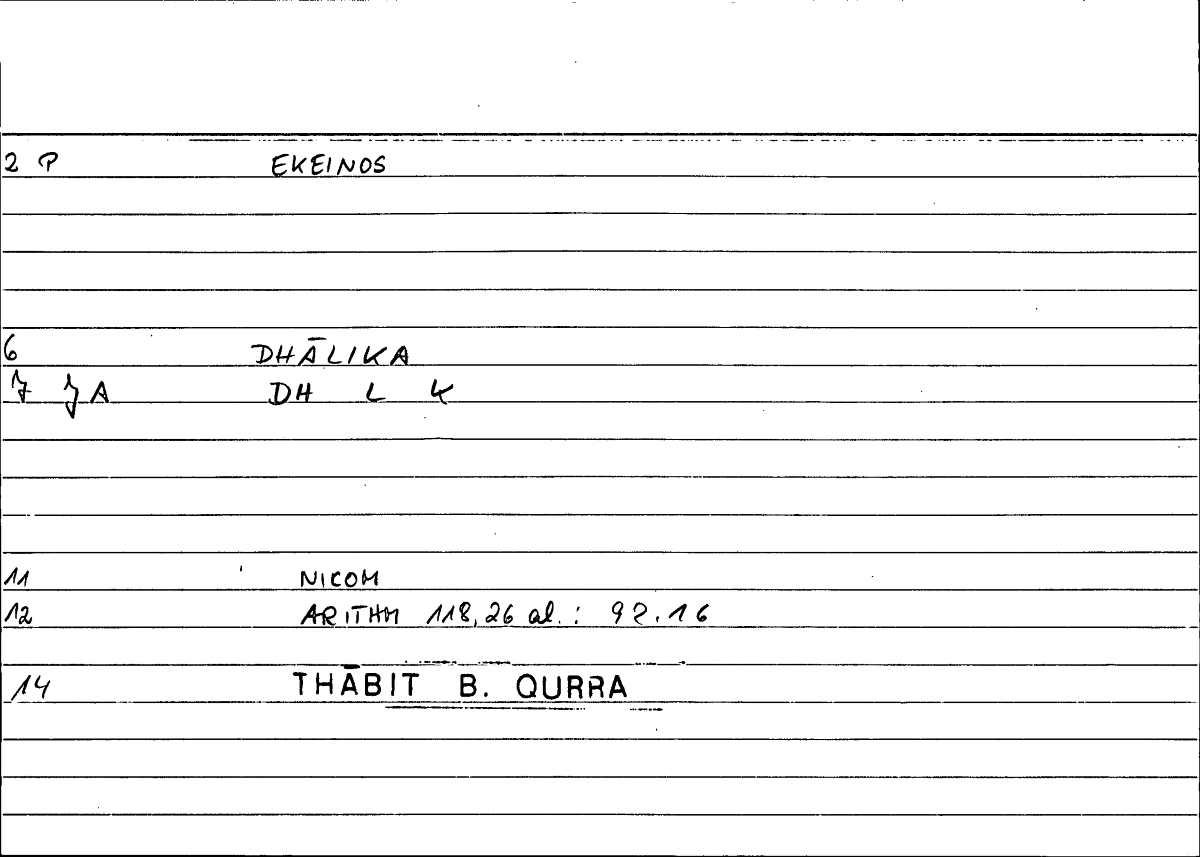 2 P EKEINOS
6 DHĀLIKA
7 JA DH L K
11 NICOM
12 ARITHM 118,26 al. : 92.16
14 THĀBIT B. QURRA